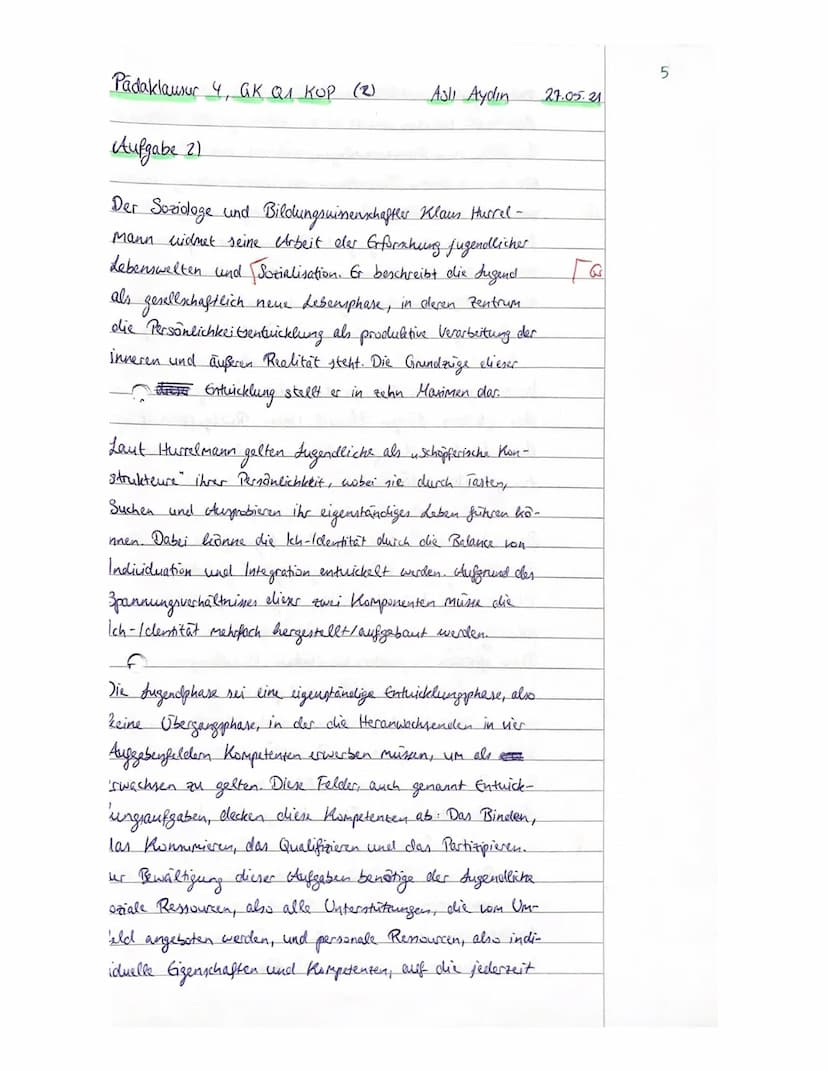 5
Pädaklausur 4, GK Q1 KOP (2) Aslı Aydın 27.05.21
Aufgabe 2)
Der Soziologe und Bildungswissenschaftler Klaus Hurrel-
mann widmet seine Arbeit der Erforschung jugendlicher
Lebenswelten und Sozialisation. Er beschreibt die Jugend
G
als gesellschaftlich neue Lebensphase, in deren Zentrum
die Persönlichkeitsentwicklung als produktive Verarbeitung der
inneren und äußeren Realität steht. Die Grundzüge dieser
Entwicklung stellt er in zehn Maximen dar.
Laut Hurrelmann gelten Jugendliche als „schöpferische Kon-
strukteure" ihrer Persönlichkeit, wobei sie durch Tasten,
Suchen und Ausprobieren ihr eigenständiges Leben führen kö-
nnen. Dabei könne die Ich-Identität durch die Balance von
Individuation und Integration entwickelt werden. Aufgrund des
Spannungsverhältnisses dieser zwei Komponenten müsse die
Ich-Identität mehrfach hergestellt/aufgebaut werden.
Die Jugendphase sei eine eigenständige Entwicklungsphase, also
keine Übergangsphase, in der die Heranwachsenden in vier
Aufgabenfeldern Kompetenzen erwerben müssen, um als
rwachsen zu gelten. Diese Felder, auch genannt Entwick-
ungsaufgaben, decken diese Kompetenzen ab: Das Binden,
as Konsumieren, das Qualifizieren und das Partizipieren.
ur Bewältigung dieser Aufgaben benötige der Jugendliche
oziale Ressourcen, also alle Unterstützungen, die vom Um-
eld angeboten werden, und personale Ressourcen, also indi-
iduelle Eigenschaften und Kompetenzen, auf die jederzeit